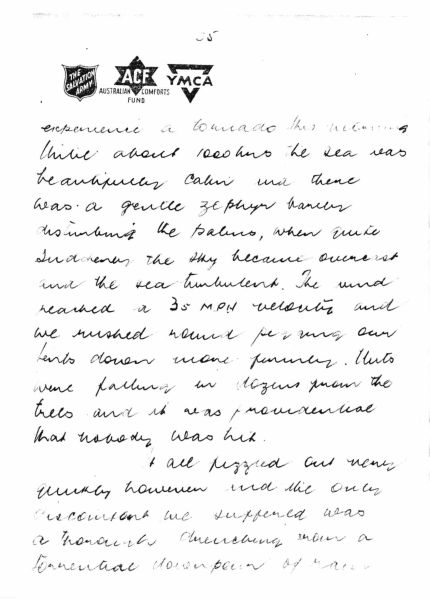 35
THE SALVATION ARMY
ACF
AUSTRALIAN COMFORTS FUND
YMCA
experience a tornado this morning
Until about 1000 hrs the sea was
beautifully calm and there
was a gentle zephyr barely
disturbing the palms, when quite
suddenly the sky became overcast
and the sea turbulent. The wind
reached a 35 MPH velocity and
we rushed round pegging our
tents down more firmly. Nuts
were falling in dozens from the
trees and it was providential
that nobody was hit.
It all fizzled out very
quickly however and the only
discomfort we suffered was
a thorough drenching from a
torrential downpour of rain